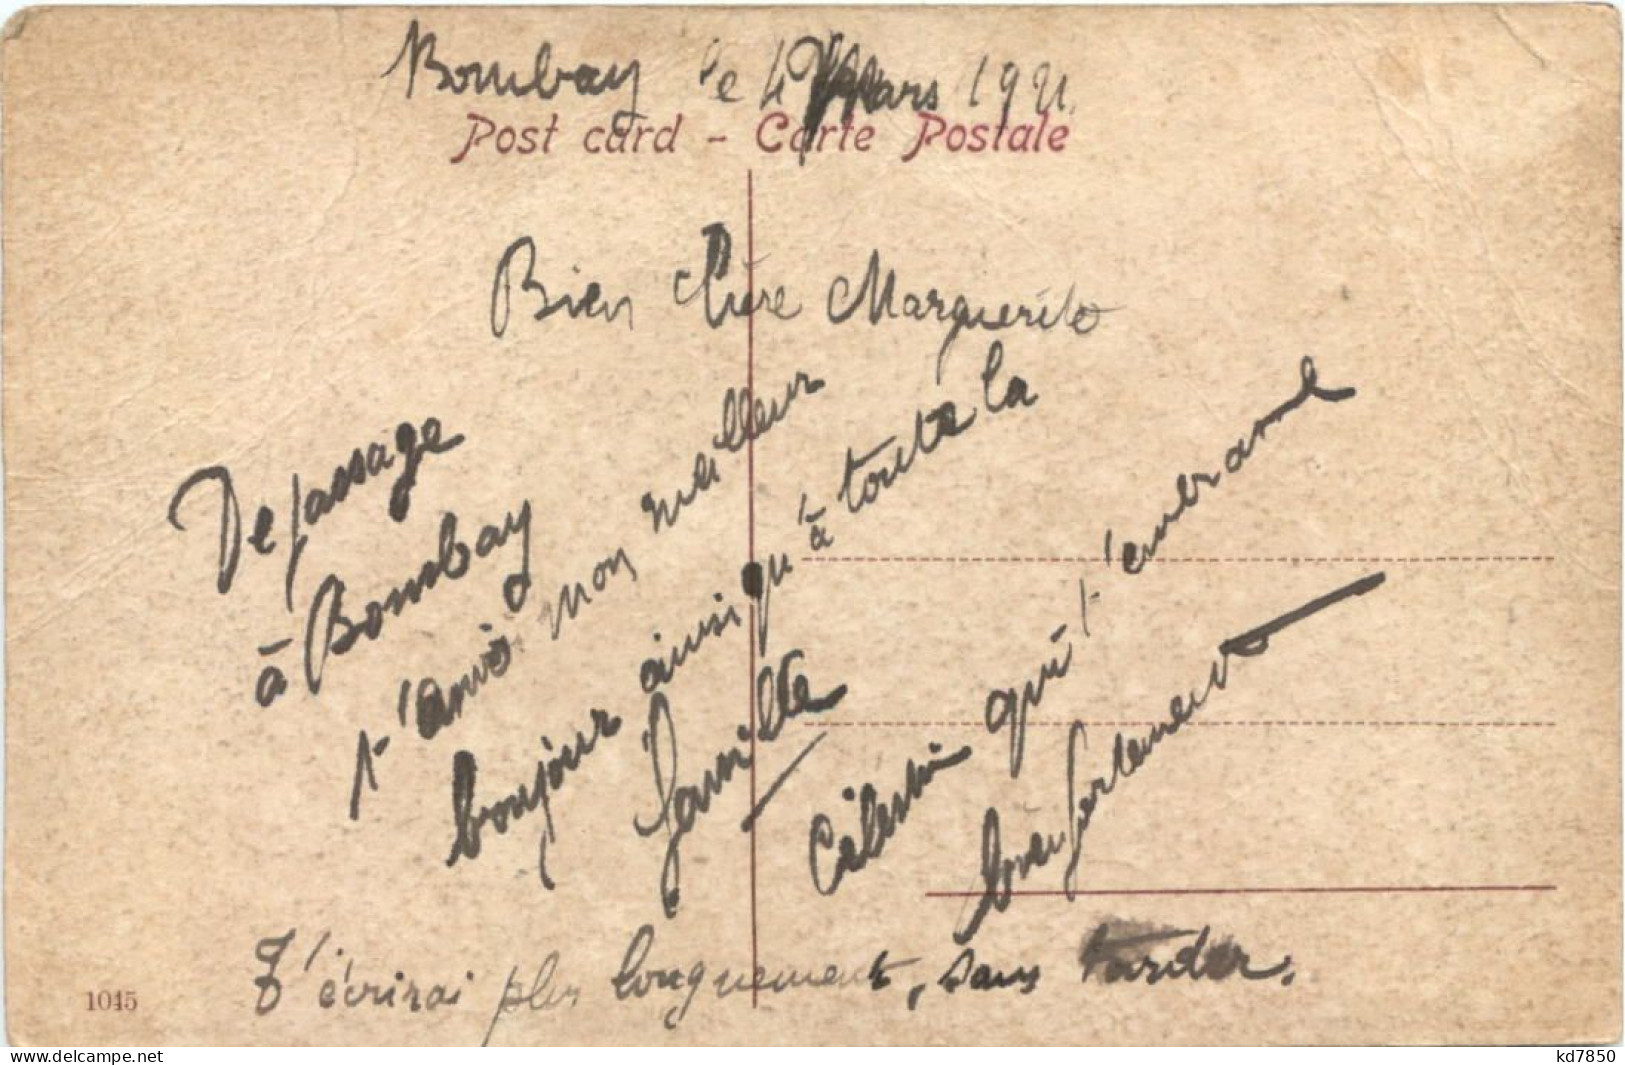 Bombay le 4 Mars 1921
Post card - Carte Postale
Bien Chère Marguerite
De passage
à Bombay
t'envoi mon meilleur
bonjour ainsi qu'à toute la
famille
Célestin qui t'embrasse
bien fortement
T'écrirai plus longuement, sans tarder.
1045
www.delcampe.net
kd7850